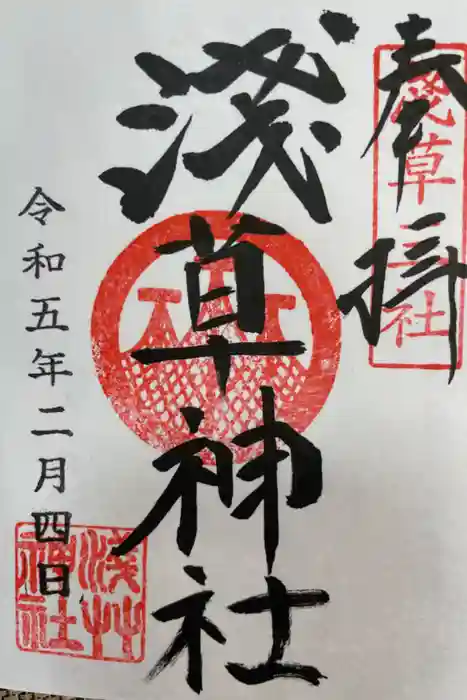 奉拝
浅草三社
淺草神社
令和五年二月四日
淺草神社